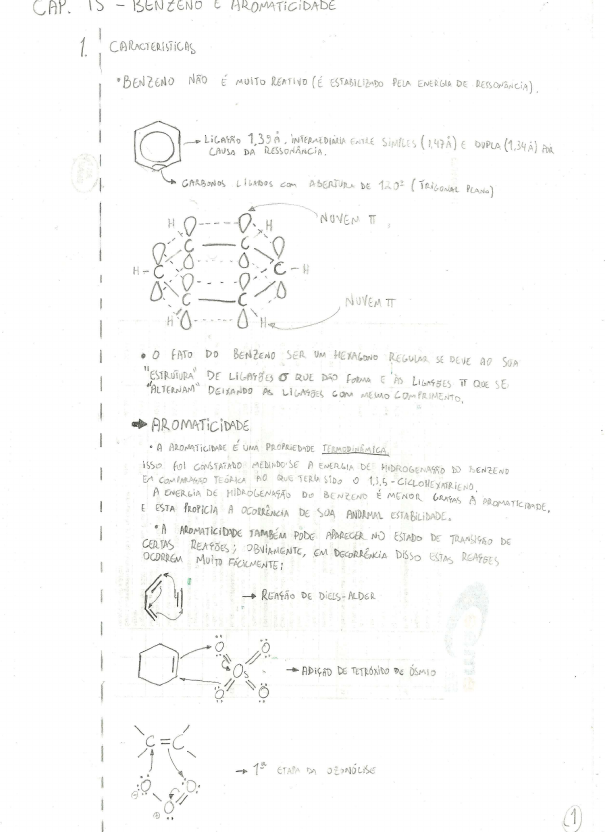 CAP. 15 - BENZENO E AROMATICIDADE
1. CARACTERÍSTICAS
• BENZENO NÃO É MUITO REATIVO (É ESTABILIZADO PELA ENERGIA DE RESSONÂNCIA).
→ LIGAÇÃO 1,39Å. INTERMEDIÁRIA ENTRE SIMPLES (1,47Å) E DUPLA (1,34Å) POR
CAUSA DA RESSONÂNCIA.
→ CARBONOS LIGADOS COM ABERTURA DE 120º (TRIGONAL PLANO)
NUVEM π
H H
C C
H-C C-H
C C
H H
NUVEM π
• O FATO DO BENZENO SER UM HEXÁGONO REGULAR SE DEVE AO SUA
"ESTRUTURA" DE LIGAÇÕES σ QUE DÃO FORMA E ÀS LIGAÇÕES π QUE SE
"ALTERNAM" DEIXANDO AS LIGAÇÕES COM MESMO COMPRIMENTO.
→ AROMATICIDADE
• A AROMATICIDADE É UMA PROPRIEDADE TERMODINÂMICA.
ISSO FOI CONSTATADO MEDINDO-SE A ENERGIA DE HIDROGENAÇÃO DO BENZENO
EM COMPARAÇÃO TEÓRICA AO QUE TERIA SIDO O 1,3,5-CICLOHEXATRIENO.
A ENERGIA DE HIDROGENAÇÃO DO BENZENO É MENOR GRAÇAS A AROMATICIDADE,
E ESTA PROPICIA A OCORRÊNCIA DE SUA ANORMAL ESTABILIDADE.
• A AROMATICIDADE TAMBÉM PODE APARECER NO ESTADO DE TRANSIÇÃO DE
CERTAS REAÇÕES; OBVIAMENTE, EM DECORRÊNCIA DISSO ESTAS REAÇÕES
OCORREM MUITO FACILMENTE:
→ REAÇÃO DE DIELS-ALDER
O O
Os
O O
→ ADIÇÃO DE TETRÓXIDO DE ÓSMIO
C=C
O O
O
→ 1ª ETAPA DA OZONÓLISE
1